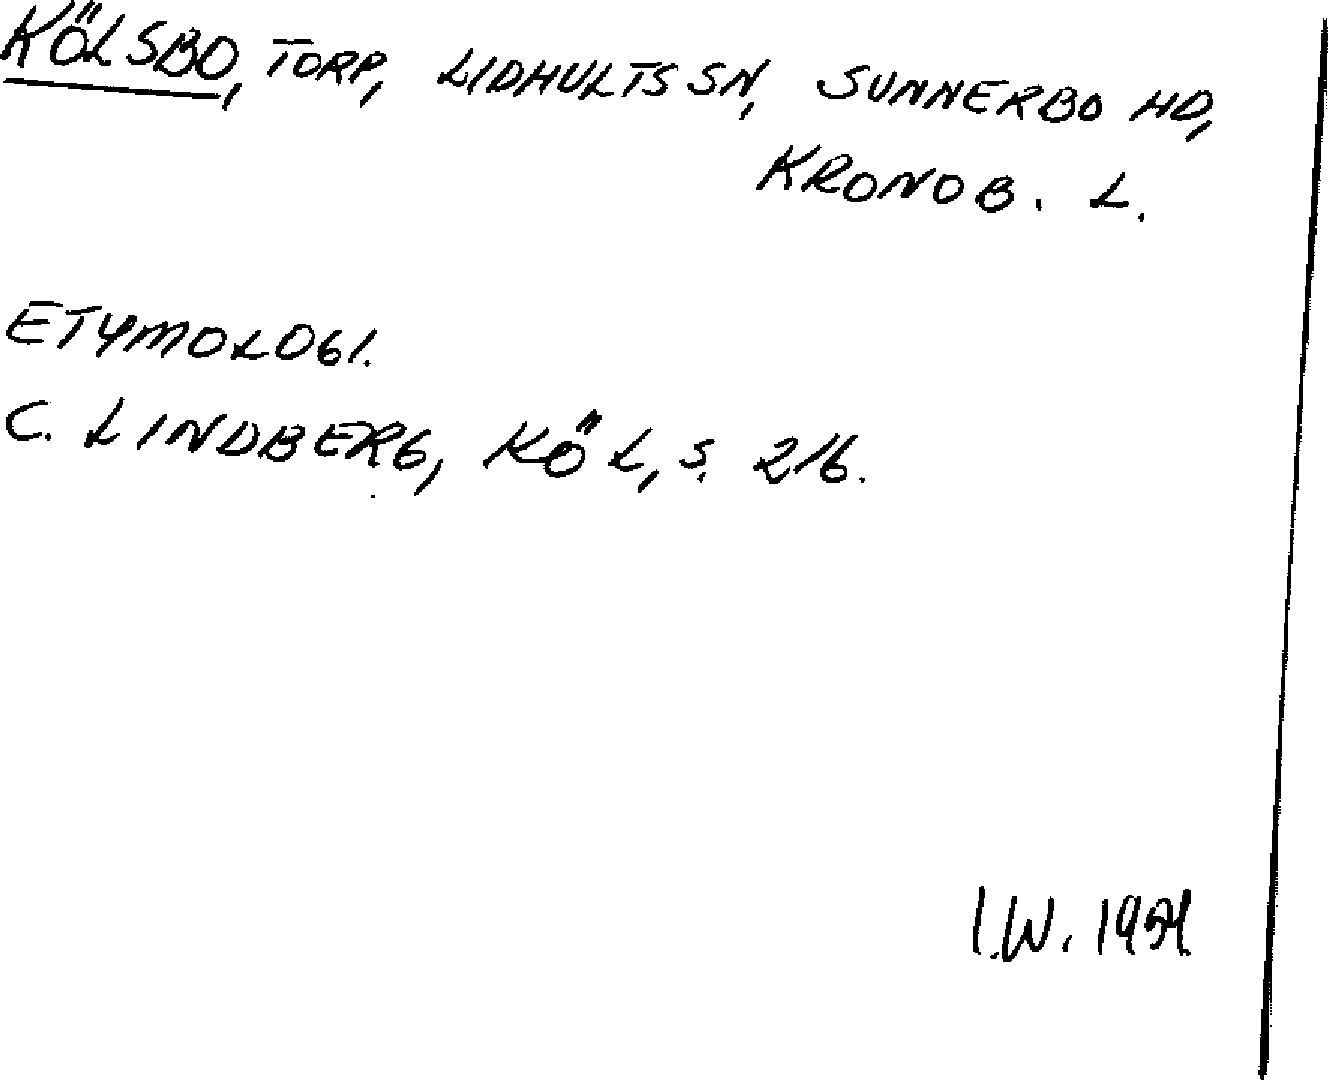 KÖLSBO, TORP, LIDHULTS SN, SUNNERBO HD,
KRONOB. L.
ETYMOLOGI.
C. LINDBERG, KÖL, S. 216.
I.W.